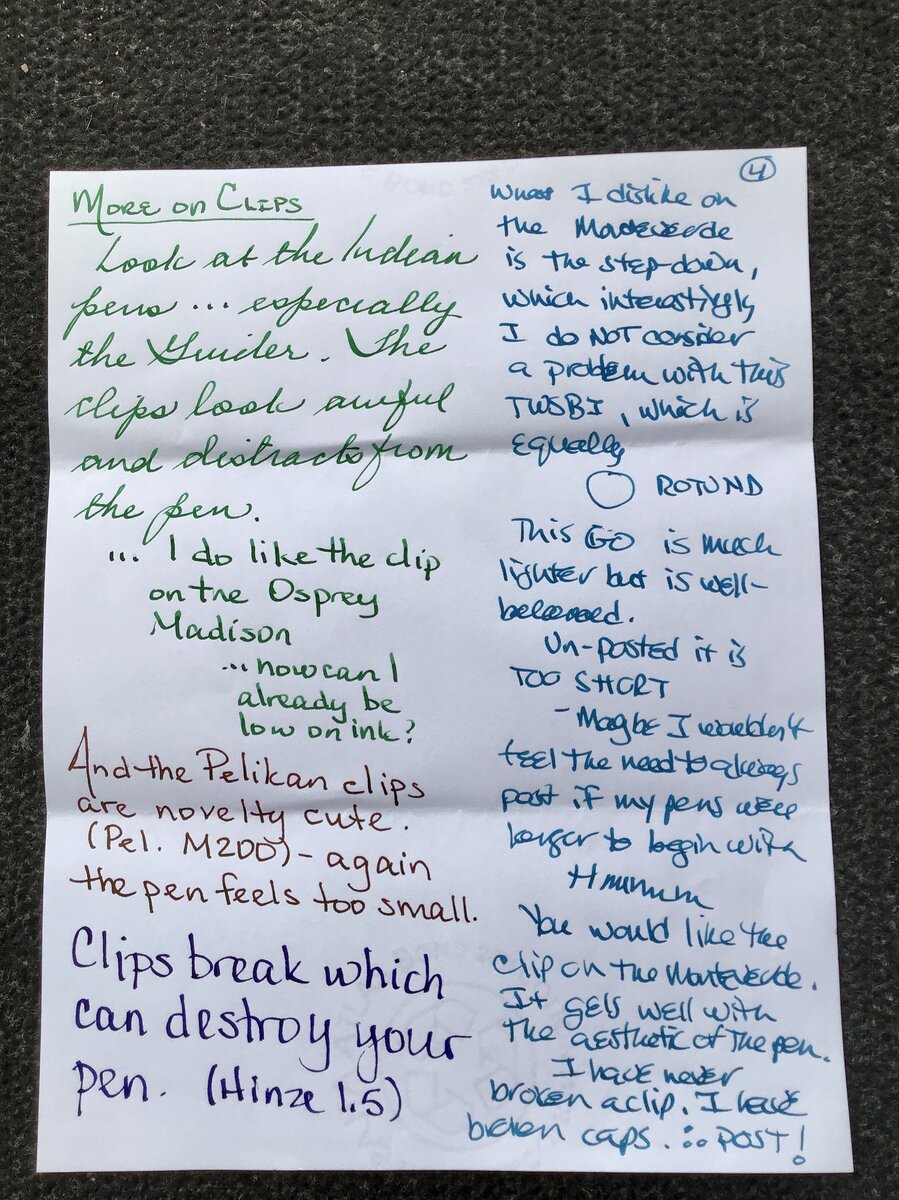 More on Clips
Look at the Indian
pens ... especially
the Guider. The
clips look awful
and distracts from
the pen.
... I do like the clip
on the Osprey
Madison
... how can I
already be
low on ink?
And the Pelikan clips
are novelty cute.
(Pel. M200) - again
the pen feels too small.
Clips break which
can destroy your
pen. (Hinze 1.5)
4
What I dislike on
the Monteverde
is the step-down,
which interestingly
I do NOT consider
a problem with this
TWSBI, which is
equally
ROTUND
This GO is much
lighter but is well-
balanced.
Un-posted it is
TOO SHORT
- Maybe I wouldn't
feel the need to always
post if my pens were
longer to begin with
Hmmmm
You would like the
clip on the Monteverde.
It gels well with
the aesthetic of the pen.
I have never
broken a clip. I have
broken caps. ∴ POST!